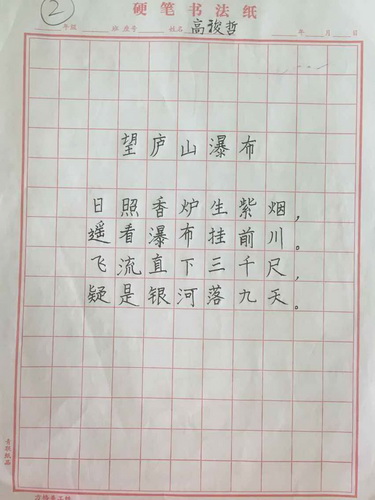 硬笔书法纸
②
年级 班 座号 姓名 高骏哲 年 月 日
望庐山瀑布
日照香炉生紫烟，
遥看瀑布挂前川。
飞流直下三千尺，
疑是银河落九天。